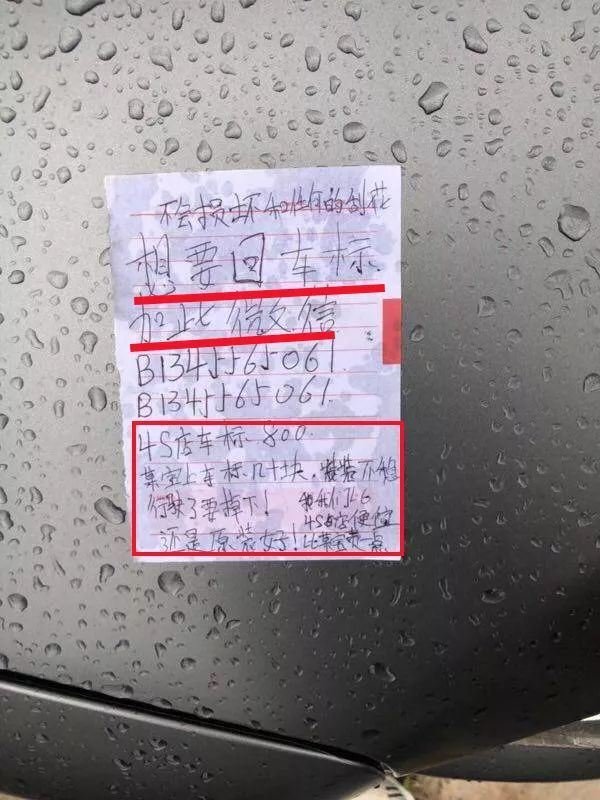 不会损坏和任何的刮花
想要回车标
加此微信
B1345565061.
B1345565061.
4S店车标800.
某宝上车标几十块,装不稳
行驶了要掉下!
还是原装好!
4S店便宜
比某宝贵一点